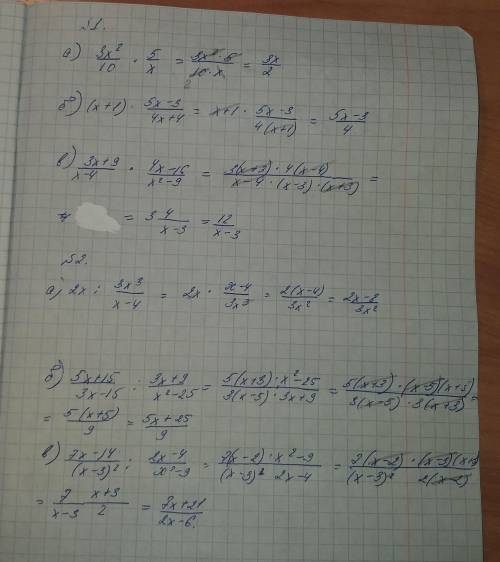 №1.
а) 3x²/10 · 5/x = 3x² · 5/10 · x = 3x/2
2
б) (x+1) · 5x-3/4x+4 = x+1 · 5x-3/4(x+1) = 5x-3/4
в) 3x+9/x-4 · 4x-16/x²-9 = 3(x+3) · 4(x-4)/x-4 · (x-3) · (x+3) =
= 3 4/x-3 = 12/x-3
№2.
а) 2x : 3x³/x-4 = 2x · x-4/3x³ = 2(x-4)/3x² = 2x-8/3x²
б) 5x+15/3x-15 : 3x+9/x²-25 = 5(x+3) · x²-25/3(x-5) · 3x+9 = 5(x+3) · (x-5)(x+5)/3(x-5) · 3(x+3) =
= 5(x+5)/9 = 5x+25/9
в) 7x-14/(x-3)² : 2x-4/x²-9 = 7(x-2) · x²-9/(x-3)² 2x-4 = 7(x-2) · (x-3)(x+3)/(x-3)² 2(x-2)
= 7/x-3 x+3/2 = 7x+21/2x-6.